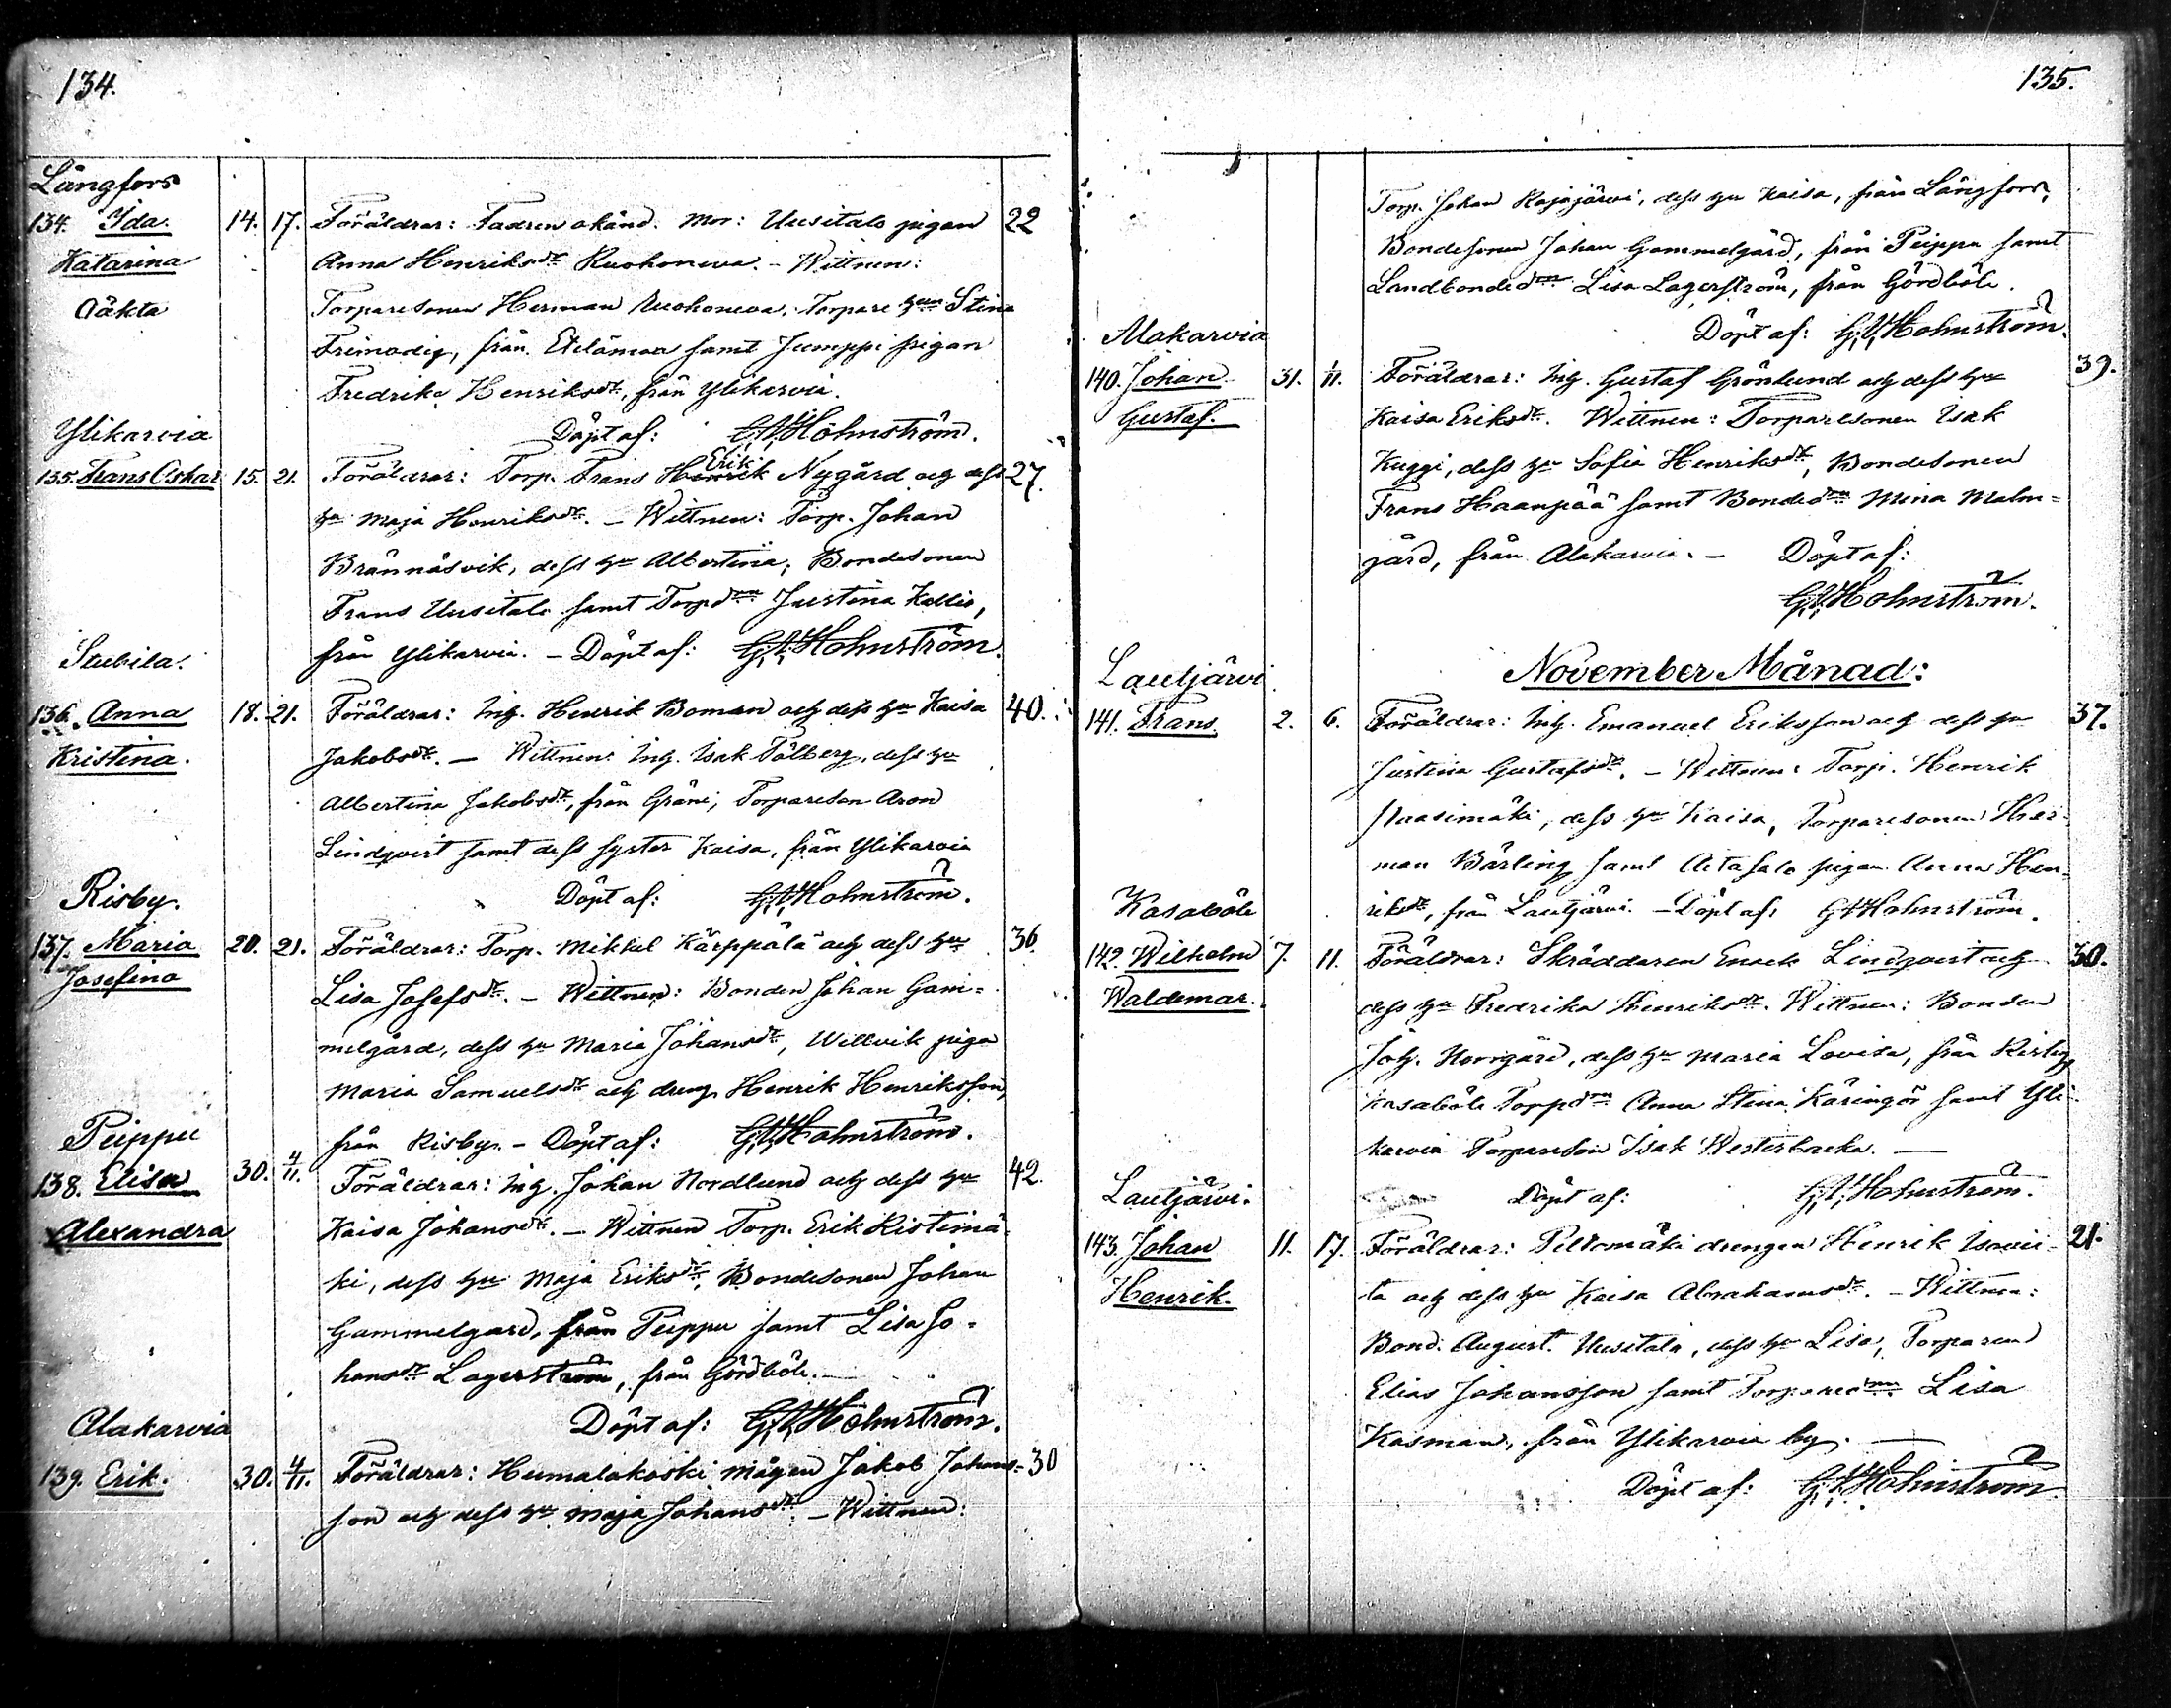 134.
Långfors
134. Ida. 14. 17. Föräldrar: Fadren okänd. Mor: Uusitalo pigan 22
Katarina Anna Henriksdr Ruohoneva. - Wittnen:
Oäkta Torparesonen Herman Ruohoneva, Torpare hun Stina
Frimodig, från Etelämaa samt Jumppi pigan
Fredrika Henriksdr, från Ylikarvia.
Ylikarvia Döpt af: G.A.Holmström.
135. Frans Oskar 15. 21. Föräldrar: Torp. Frans Henrik Erik Nygård och dess 27.
hu Maja Henriksdr. - Wittnen: Torp. Johan
Brännäsvik, dess hu Albertina; Bondesonen
Frans Uusitalo samt Torpdrn Justina Kallio,
från Ylikarvia. - Döpt af: G.A.Holmström.
Stubila.
136. Anna 18. 21. Föräldrar: Inh. Henrik Boman och dess hu Kaisa 40.
Kristina. Jakobsdr. - Wittnen: Inh. Isak Tålberg, dess hu
Albertina Jakobsdr, från Gräni, Torpareson Aron
Lindqvist samt dess syster Kaisa, från Ylikarvia
Döpt af: G.A.Holmström.
Risby.
137. Maria 20. 21. Föräldrar: Torp. Mikkel Kärppälä och dess hu 36.
Josefina Lisa Josefsdr. - Wittnen: Bonden Johan Gam=
melgård, dess hu Maria Johansdr, Willvik piga
Maria Samuelsdr och dreng Henrik Henriksson,
från Risby. - Döpt af: G.A.Holmström.
Peippu
138. Elisa 30. 4/11. Föräldrar: Inh. Johan Nordlund och dess hu 42.
Alexandra Kaisa Johansdr. - Wittnen Torp. Erik Ristimä-
ki, dess hu Maja Eriksdr, Bondesonen Johan
Gammelgård, från Peippu samt Lisa Jo-
hansdr Lagerström, från Gördböle. -
Döpt af: G.A.Holmström.
Alakarvia
139. Erik. 30. 4/11. Föräldrar: Humalakoski mågen Jakob Johans= 30
son och dess hu Maja Johansdr. - Wittnen:
135.
Torp. Johan Rajajärvi, dess hu Kaisa, från Långfors,
Bondesonen Johan Gammelgård, från Peippu samt
Landbondedrn Lisa Lagerström, från Gördböle.
Döpt af: G.A.Holmström.
Alakarvia
140. Johan 31. 1/11. Föräldrar: Inh. Gustaf Grönlund och dess hu 39.
Gustaf. Kaisa Eriksdr. Wittnen: Torparesonen Isak
Kuggi, dess hu Sofia Henriksdr, Bondesonen
Frans Haanpää samt Bondedrn Mina Malm=
gård, från Alakarvia. - Döpt af:
G.A.Holmström.
November Månad:
Lautjärvi
141. Frans. 2. 6. Föräldrar: Inh. Emanuel Eriksson och dess hu 37.
Justina Gustafsdr. - Wittnen: Torp. Henrik
Haasimäki, dess hu Kaisa, Torparesonen Her-
man Bärling samt Aitasalo pigan Anna Hen-
riksdr, från Lautjärvi. - Döpt af: G.A.Holmström.
Kasaböle
142. Wilhelm 7. 11. Föräldrar: Skräddaren Enok Lindqvist och 30.
Waldemar. dess hu Fredrika Henriksdr. Wittnen: Bonden
Joh. Norrgård, dess hu Maria Lovisa, från Risby,
Kasaböle Torpdrn Anna Stina Käringör samt Yli-
karvia Torpareson Isak Westerbacka. -
Döpt af: G.A.Holmström.
Lautjärvi.
143. Johan 11. 17. Föräldrar: Peltomäki drengen Henrik Isovii- 21.
Henrik. ta och dess hu Kaisa Abrahamsdr. - Wittnen:
Bond. August Uusitalo, dess hu Lisa, Torparen
Elias Johansson samt Torparedrn Lisa
Kasman, från Ylikarvia by. -
Döpt af: G.A.Holmström.